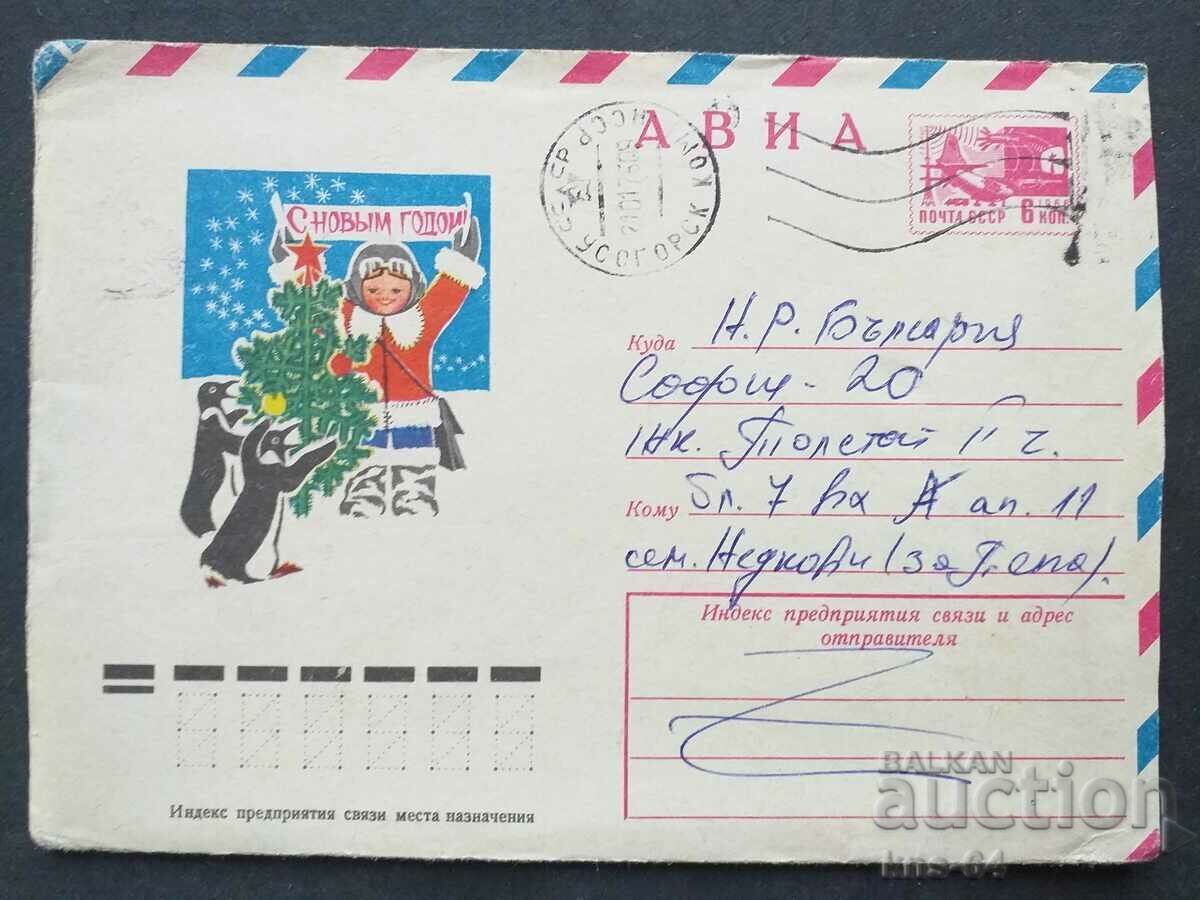 АВИА
ПОЧТА СССР 6 КОП.
С НОВЫМ ГОДОМ!
УСОГОРСК КОМИ
Куда Н.Р. България
София - 20
жк. Толстой
Кому бл. 7 вх А ап. 11
сем. Недкови (за Пепа).
Индекс предприятия связи и адрес
отправителя
Индекс предприятия связи места назначения
BALKAN
auction
kns-64